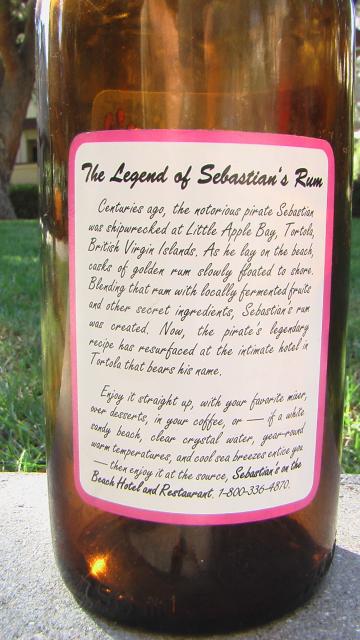 The Legend of Sebastian's Rum
Centuries ago, the notorious pirate Sebastian
was shipwrecked at Little Apple Bay, Tortola,
British Virgin Islands. As he lay on the beach,
casks of golden rum slowly floated to shore.
Blending that rum with locally fermented fruits
and other secret ingredients, Sebastian's rum
was created. Now, the pirate's legendary
recipe has resurfaced at the intimate hotel in
Tortola that bears his name.
Enjoy it straight up, with your favorite mixer,
over desserts, in your coffee, or — if a white
sandy beach, clear crystal water, year-round
warm temperatures, and cool sea breezes entice you
— then enjoy it at the source, Sebastian's on the
Beach Hotel and Restaurant. 1-800-336-4870.